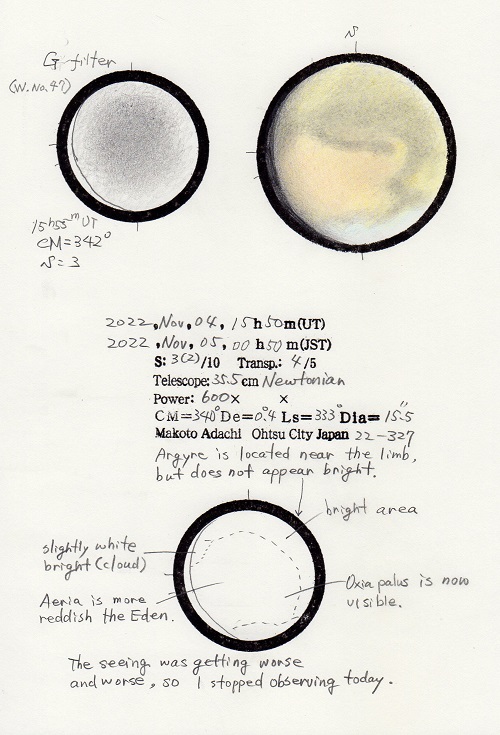 G-filter
(W. No. 47)
S
15h55m UT
CM=342°
S=3
2022, Nov, 04, 15h50m(UT)
2022, Nov, 05, 00h50m(JST)
S: 3(2)/10 Transp.: 4/5
Telescope: 35.5cm Newtonian
Power: 600× ×
CM=340° De=0.°4 Ls=333° Dia=15.5"
Makoto Adachi Ohtsu City Japan 22-327
Argyre is located near the limb,
but does not appear bright.
bright area
slightly white
bright (cloud)
Aeria is more
reddish the Eden.
Oxia palus is now
visible.
The seeing was getting worse
and worse, so I stopped observing today.